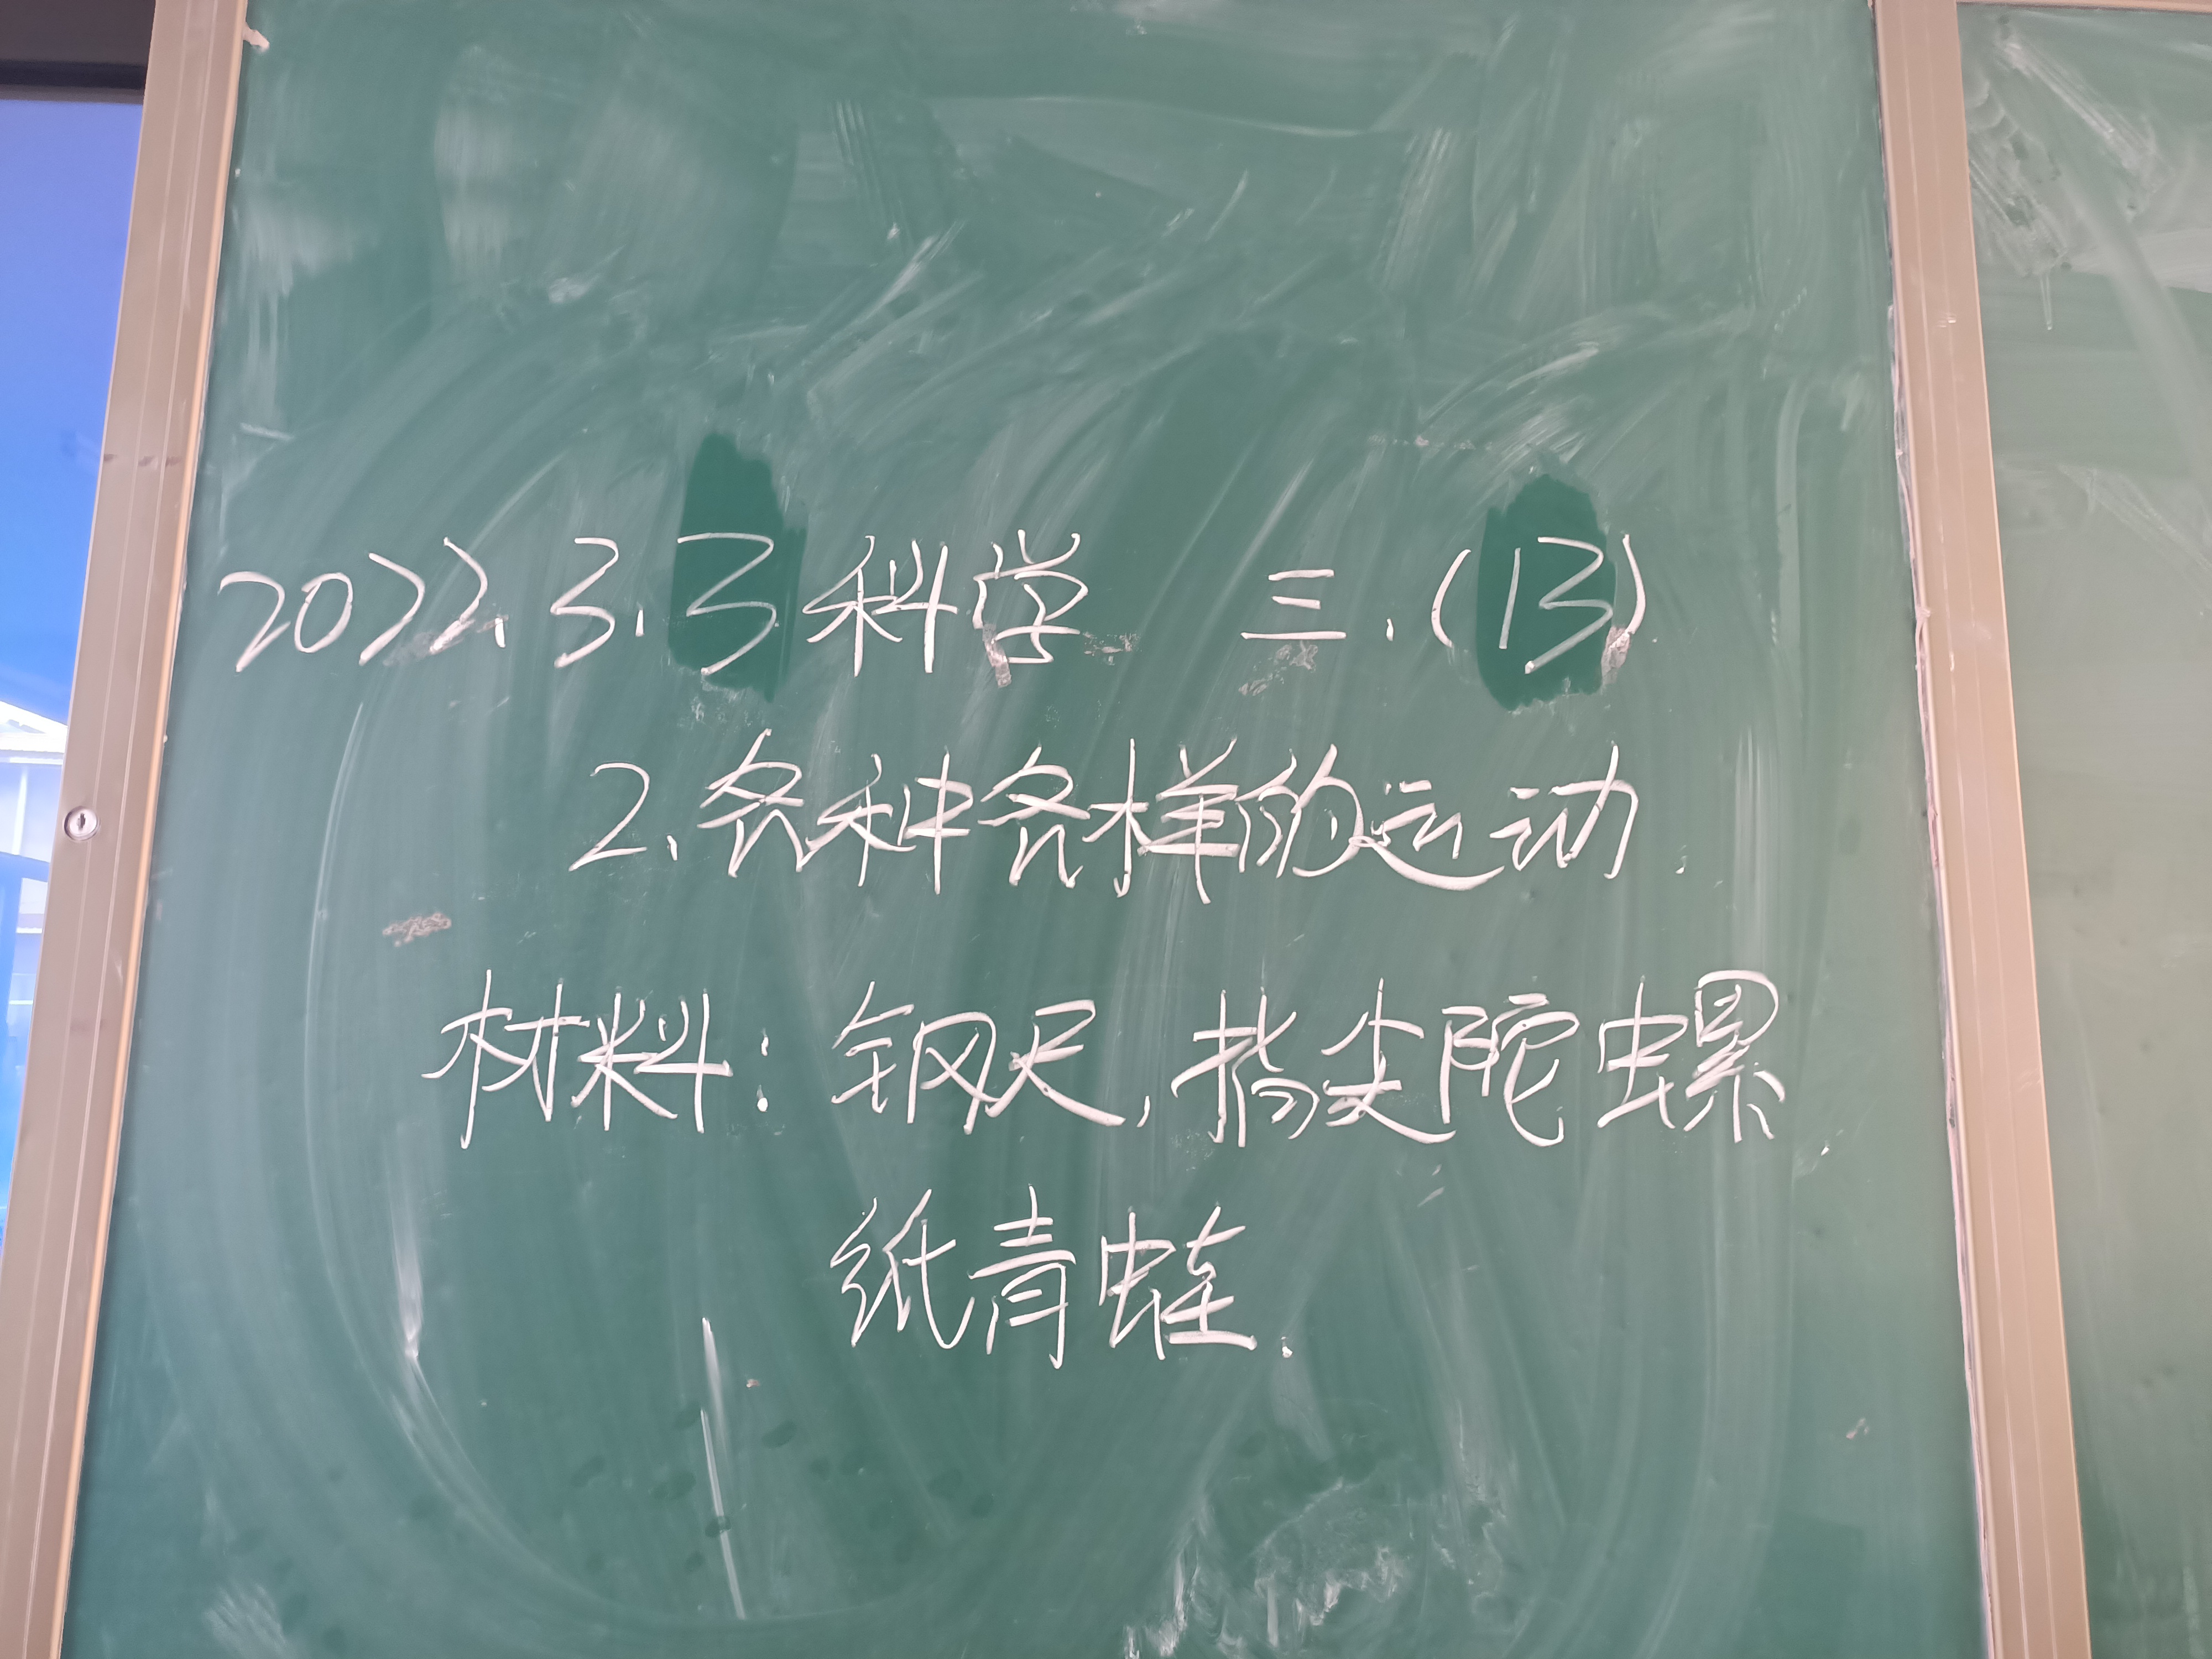 2022.3.3科学 三.(13)
2.各种各样的运动.
材料:钢尺,指尖陀螺
纸青蛙.